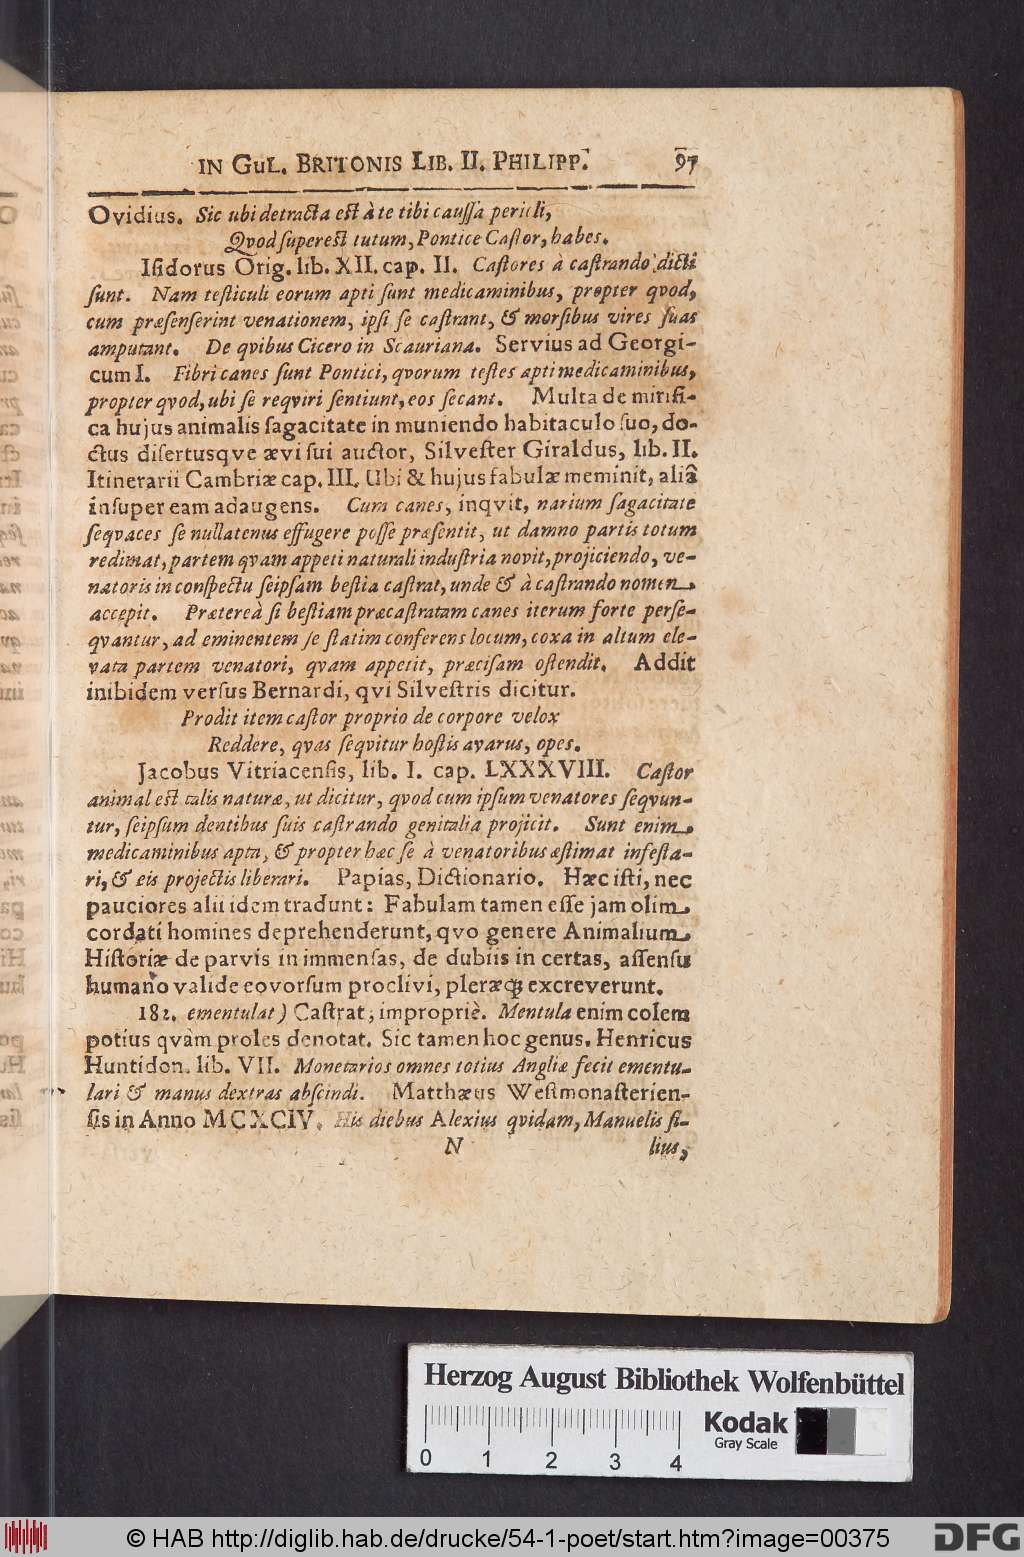 IN GuL. BRITONIS LIB. II. PHILIPP. 97
Ovidius. Sic ubi detracta est à te tibi caussa pericli,
Qvod superest tutum, Pontice Castor, habes.
Isidorus Orig. lib. XII. cap. II. Castores à castrando dicti
sunt. Nam testiculi eorum apti sunt medicaminibus, propter qvod,
cum præsenserint venationem, ipsi se castrant, & morsibus vires suas
amputant. De qvibus Cicero in Scauriana. Servius ad Georgi-
cum I. Fibri canes sunt Pontici, qvorum testes apti medicaminibus,
propter qvod, ubi se reqviri sentiunt, eos secant. Multa de mirifi-
ca hujus animalis sagacitate in muniendo habitaculo suo, do-
ctus disertusqve ævi sui auctor, Silvester Giraldus, lib. II.
Itinerarii Cambriæ cap. III. Ubi & hujus fabulæ meminit, aliâ
insuper eam adaugens. Cum canes, inqvit, narium sagacitate
seqvaces se nullatenus effugere posse præsentit, ut damno partis totum
redimat, partem qvam appeti naturali industria novit, projiciendo, ve-
natoris in conspectu seipsam bestia castrat, unde & à castrando nomen
accepit. Prætereà si bestiam præcastratam canes iterum forte perse-
qvantur, ad eminentem se statim conferens locum, coxa in altum ele-
vata partem venatori, qvam appetit, præcisam ostendit. Addit
inibidem versus Bernardi, qvi Silvestris dicitur.
Prodit item castor proprio de corpore velox
Reddere, qvas seqvitur hostis avarus, opes.
Jacobus Vitriacensis, lib. I. cap. LXXXVIII. Castor
animal est talis naturæ, ut dicitur, qvod cum ipsum venatores seqvun-
tur, seipsum dentibus suis castrando genitalia projicit. Sunt enim
medicaminibus apta, & propter hæc se à venatoribus æstimat infesta-
ri, & eis projectis liberari. Papias, Dictionario. Hæc isti, nec
pauciores alii idem tradunt: Fabulam tamen esse jam olim
cordati homines deprehenderunt, qvo genere Animalium
Historiæ de parvis in immensas, de dubiis in certas, assensu
humano valide eovorsum proclivi, pleræq; excreverunt.
182. ementulat) Castrat; impropriè. Mentula enim colem
potius qvàm proles denotat. Sic tamen hoc genus. Henricus
Huntidon. lib. VII. Monetarios omnes totius Angliæ fecit ementu-
lari & manus dextras abscindi. Matthæus Westmonasterien-
sis in Anno MCXCIV. His diebus Alexius qvidam, Manuelis fi-
N lius,
Herzog August Bibliothek Wolfenbüttel
Kodak
Gray Scale
0 1 2 3 4
© HAB http://diglib.hab.de/drucke/54-1-poet/start.htm?image=00375
DFG